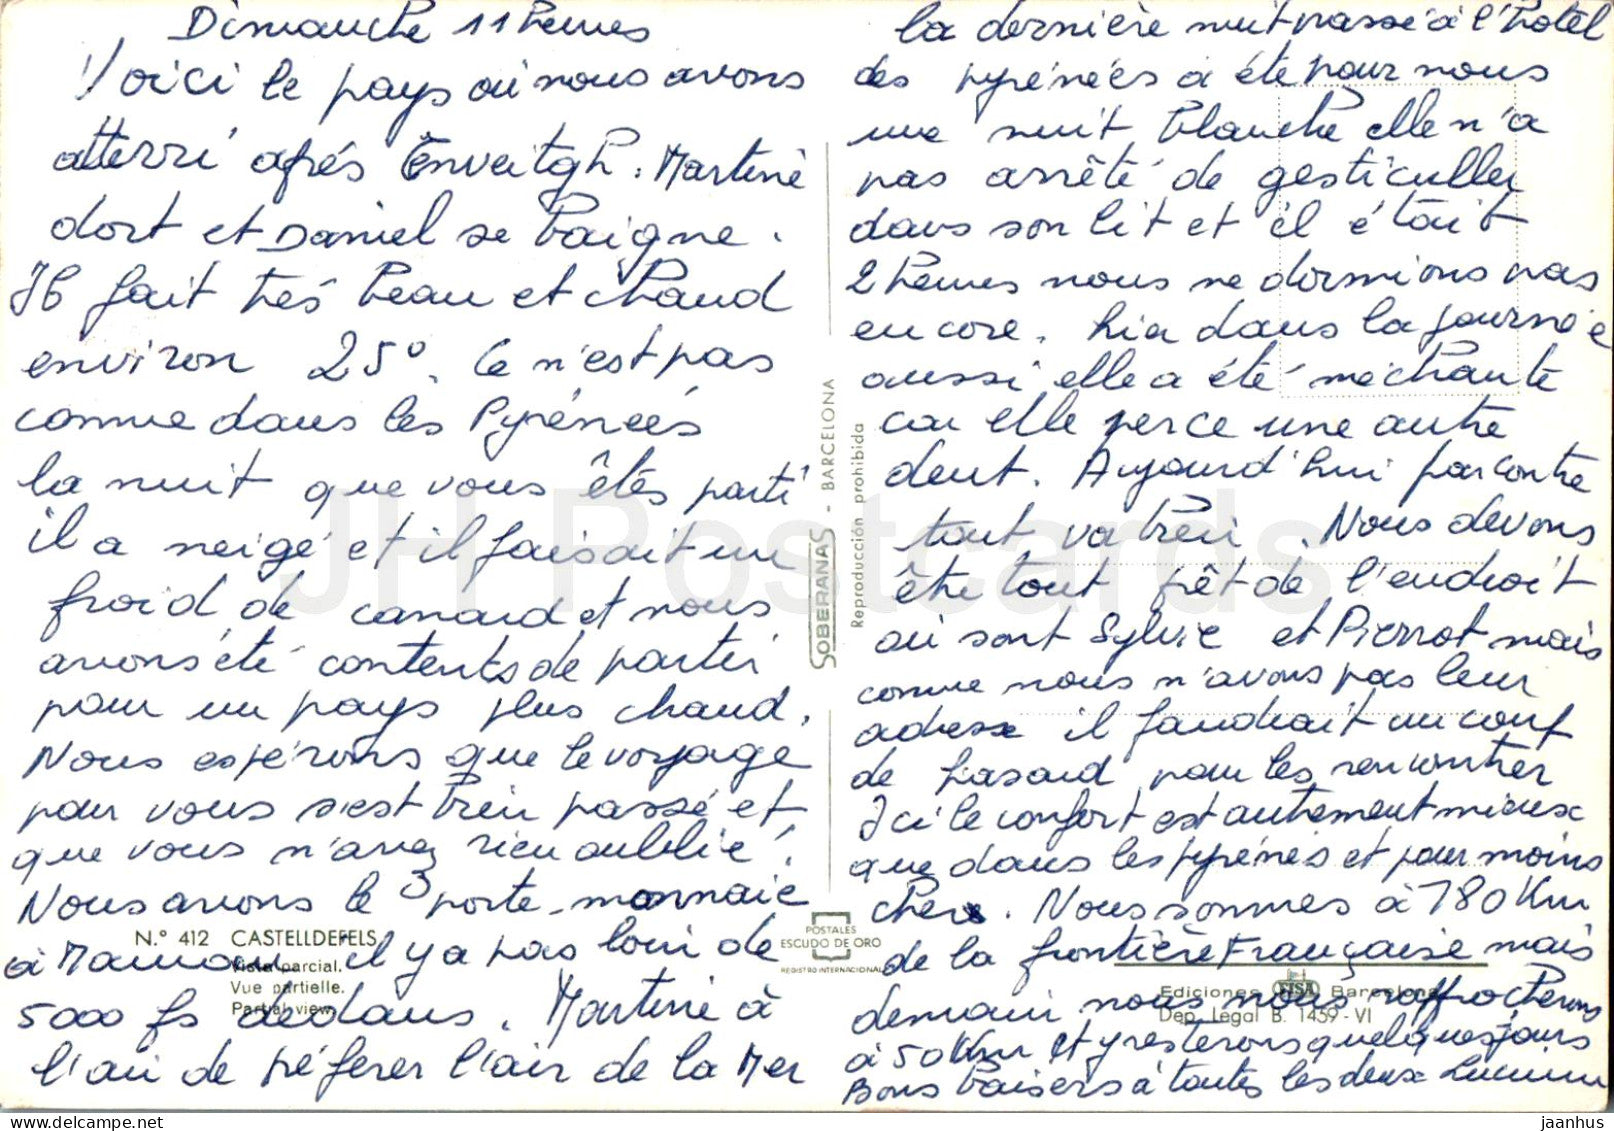 Dimanche 11 heures
Voici le pays où nous avons
atterri aprés Enveitgh. Martine
dort et Daniel se baigne.
Il fait trés beau et chaud
environ 25°. Ce n'est pas
comme dans les Pyrénées
la nuit que vous êtes parti
il a neigé et il faisait un
froid de canard et nous
avons été contents de partir
pour un pays plus chaud.
Nous espérons que le voyage
pour vous s'est bien passé et
que vous n'avez rien oublié.
Nous avons le porte-monnaie
à Maman il y a pas loin de
5000 fs dedans. Martine à
l'air de préférer l'air de la Mer
la dernière nuit passé à l'hotel
des pyrénées a été pour nous
une nuit blanche elle n'a
pas arrêté de gesticuller
dans son lit et il était
2 heures nous ne dormions pas
encore. hier dans la journée
aussi elle a été méchante
car elle perce une autre
dent. Aujourd'hui par contre
tout va bien. Nous devons
être tout prêt de l'endroit
où sont Sylvie et Pierrot mais
comme nous n'avons pas leur
adresse il faudrait un coup
de hasard pour les rencontrer
Ici le confort est autrement mieux
que dans les pyrénés et pour moins
cher. Nous sommes à 780 Km
de la frontière Française mais
demain nous nous rapprocherons
à 50 Km et y resterons quelques jours
Bons baisers à toutes les deux Lucienne
N.° 412 CASTELLDEFELS
Vista parcial.
Vue partielle.
Partial view.
SOBERANAS - BARCELONA
Reproducción prohibida
POSTALES
ESCUDO DE ORO
REGISTRO INTERNACIONAL
Ediciones FISA Barcelona
Dep. Legal B. 1459-VI
JH Postcards
jaanhus